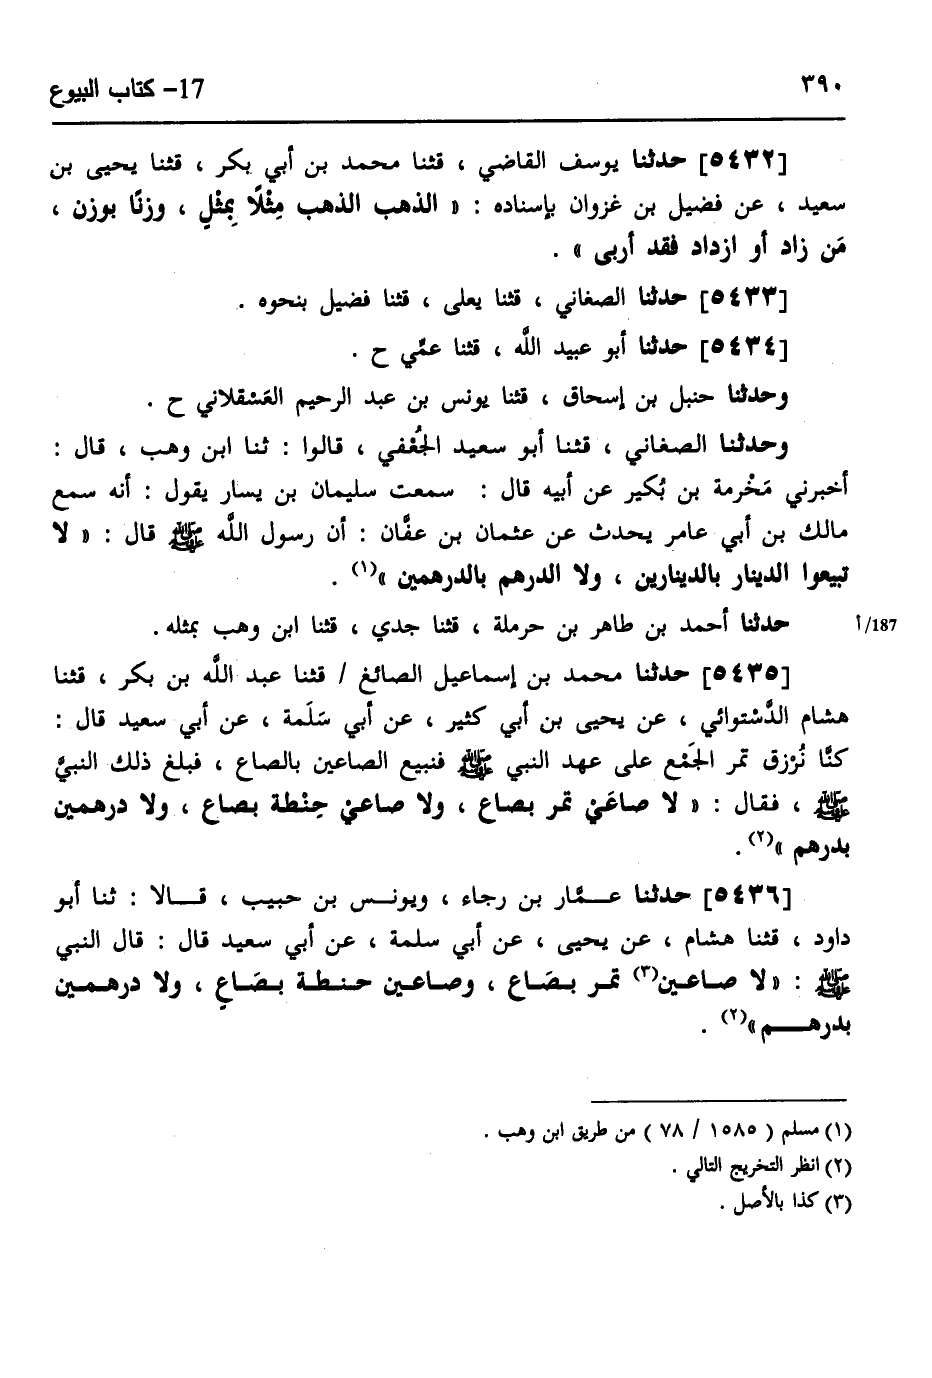 ٣٩٠
17- كتاب البيوع
[٥٤٣٢] حدثنا يوسف القاضي ، قثنا محمد بن أبي بكر ، قثنا يحيى بن
سعيد ، عن فضيل بن غزوان بإسناده : « الذهب الذهب مِثْلًا بِمثْلٍ ، وزنًا بوزن ،
مَن زاد أو ازداد فقد أربى » .
[٥٤٣٣] حدثنا الصغاني ، قثنا يعلى ، قثنا فضيل بنحوه .
[٥٤٣٤] حدثنا أبو عبيد اللَّه ، قثنا عمِّي ح .
وحدثنا حنبل بن إسحاق ، قثنا يونس بن عبد الرحيم العَسْقلاني ح .
وحدثنا الصغاني ، قثنا أبو سعيد الجُعْفي ، قالوا : ثنا ابن وهب ، قال :
أخبرني مَخْرمة بن بُكير عن أبيه قال : سمعت سليمان بن يسار يقول : أنه سمع
مالك بن أبي عامر يحدث عن عثمان بن عفَّان : أن رسول اللَّه ﷺ قال : « لا
تبيعوا الدينار بالدينارين ، ولا الدرهم بالدرهمين »(١) .
حدثنا أحمد بن طاهر بن حرملة ، قثنا جدي ، قثنا ابن وهب بمثله .
187/أ
[٥٤٣٥] حدثنا محمد بن إسماعيل الصائغ / قثنا عبد اللَّه بن بكر ، قثنا
هشام الدَّسْتوائي ، عن يحيى بن أبي كثير ، عن أبي سَلَمة ، عن أبي سعيد قال :
كنَّا نُرْزق تمر الجَمْع على عهد النبي ﷺ فنبيع الصاعين بالصاع ، فبلغ ذلك النبيَّ
ﷺ ، فقال : « لا صاعَيْ تمر بصاع ، ولا صاعيْ حِنْطة بصاع ، ولا درهمين
بدرهم »(٢) .
[٥٤٣٦] حدثنا عمَّار بن رجاء ، ويونس بن حبيب ، قالا : ثنا أبو
داود ، قثنا هشام ، عن يحيى ، عن أبي سلمة ، عن أبي سعيد قال : قال النبي
ﷺ : « لا صاعين(٣) تمر بصَاع ، وصاعين حنطة بصَاعٍ ، ولا درهمين
بدرهم »(٢) .
(١) مسلم ( ١٥٨٥ / ٧٨ ) من طريق ابن وهب .
(٢) انظر التخريج التالي .
(٣) كذا بالأصل .